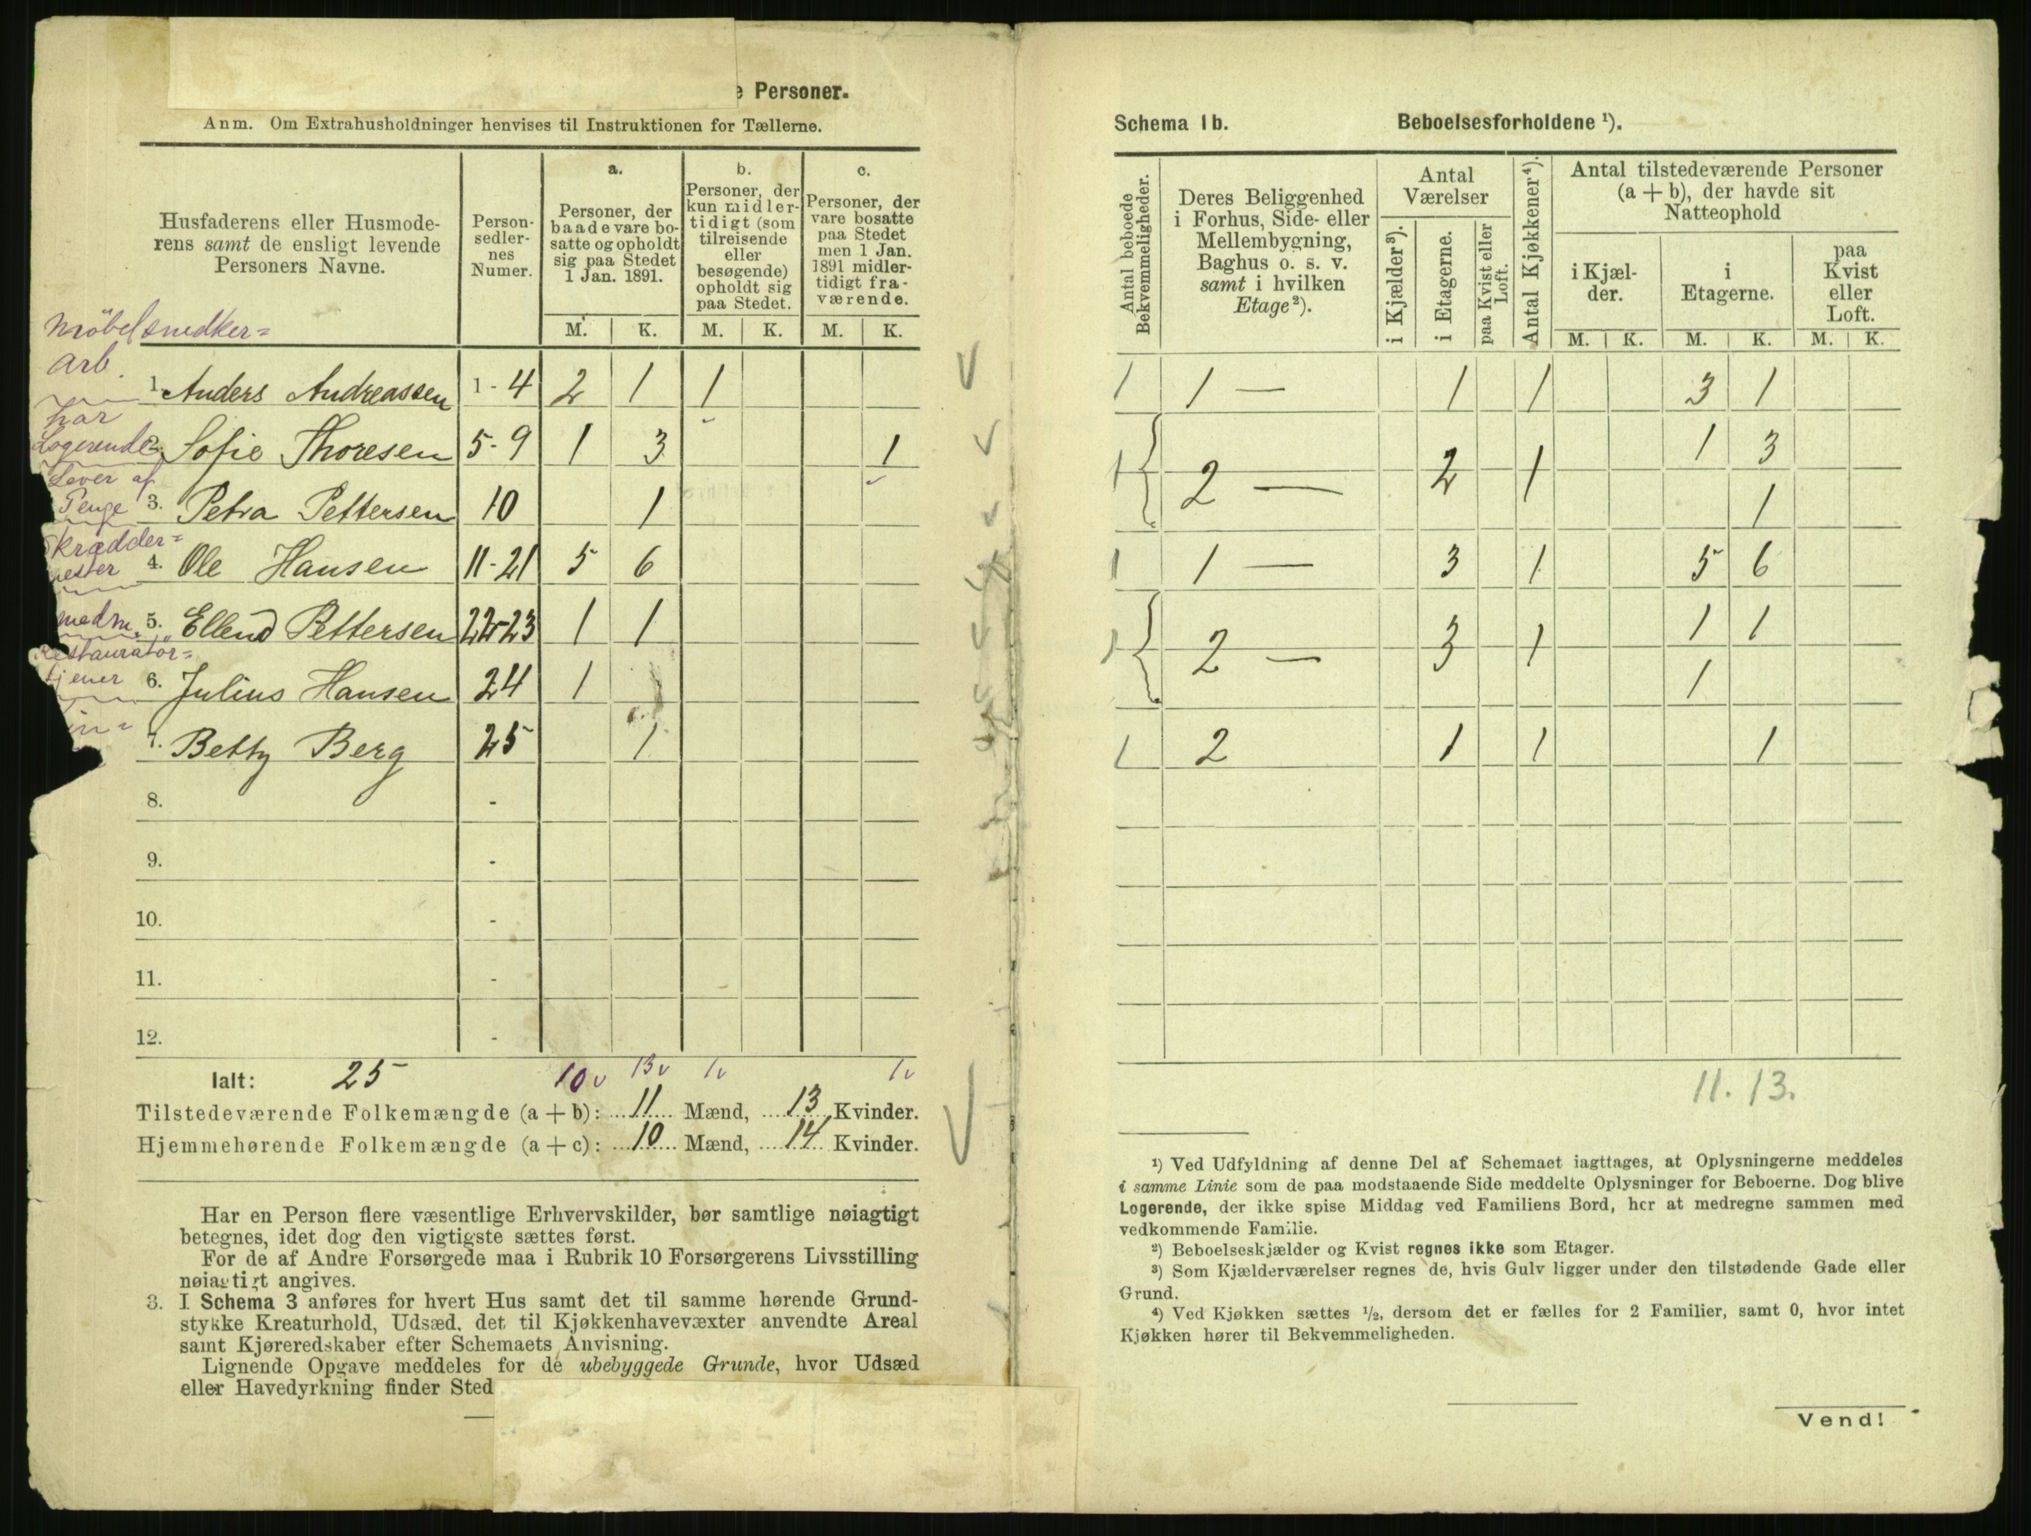 e Personer.
Anm. Om Extrahusholdninger henvises til Instruktionen for Tællerne.
Husfaderens eller Husmoderens samt de ensligt levende Personers Navne.
Personsedlernes Numer.
a.
Personer, der baade vare bosatte og opholdt sig paa Stedet 1 Jan. 1891.
b.
Personer, der kun midlertidigt (som tilreisende eller besøgende) opholdt sig paa Stedet.
c.
Personer, der vare bosatte paa Stedet men 1 Jan. 1891 midlertidigt fraværende.
M. K. M. K. M. K.
Möbelsnedker=
arb.
1. Anders Andreassen 1-4 2 1 1
har
Logerende
2. Sofie Thoresen 5-9 1 3 1
Lever af
Penge
3. Petra Pettersen 10 1
krædder=
mester
4. Ole Hansen 11-21 5 6
5. Ellend Pettersen 22-23 1 1
Restauratør=
tjener
6. Julius Hansen 24 1
7. Betty Berg 25 1
8. -
9. -
10. -
11. -
12. -
Ialt: 25 10 v 13 v 1 v 1 v
Tilstedeværende Folkemængde (a + b): 11 Mænd, 13 Kvinder.
Hjemmehørende Folkemængde (a + c): 10 Mænd, 14 Kvinder.
Har en Person flere væsentlige Erhvervskilder, bør samtlige nøiagtigt
betegnes, idet dog den vigtigste sættes først.
For de af Andre Forsørgede maa i Rubrik 10 Forsørgerens Livsstilling
nøiagtigt angives.
3. I Schema 3 anføres for hvert Hus samt det til samme hørende Grund-
stykke Kreaturhold, Udsæd, det til Kjøkkenhavevæxter anvendte Areal
samt Kjøreredskaber efter Schemaets Anvisning.
Lignende Opgave meddeles for de ubebyggede Grunde, hvor Udsæd
eller Havedyrkning finder Sted
Schema 1b. Beboelsesforholdene ¹).
Antal beboede Bekvemmeligheder.
Deres Beliggenhed i Forhus, Side- eller Mellembygning, Baghus o. s. v. samt i hvilken Etage²).
Antal Værelser
i Kjælder³).
i Etagerne.
paa Kvist eller Loft.
Antal Kjøkkener⁴).
Antal tilstedeværende Personer (a + b), der havde sit Natteophold
i Kjælder.
i Etagerne.
paa Kvist eller Loft.
M. K. M. K. M. K.
1 1 — 1 1 3 1
1 { 2 — 2 1 1 3
1
1 1 — 3 1 5 6
1 { 2 — 3 1 1 1
1
1 2 1 1 1
11. 13.
¹) Ved Udfyldning af denne Del af Schemaet iagttages, at Oplysningerne meddeles
i samme Linie som de paa modstaaende Side meddelte Oplysninger for Beboerne. Dog blive
Logerende, der ikke spise Middag ved Familiens Bord, her at medregne sammen med
vedkommende Familie.
²) Beboelseskjælder og Kvist regnes ikke som Etager.
³) Som Kjælderværelser regnes de, hvis Gulv ligger under den tilstødende Gade eller
Grund.
⁴) Ved Kjøkken sættes ¹/₂, dersom det er fælles for 2 Familier, samt 0, hvor intet
Kjøkken hører til Bekvemmeligheden.
Vend!